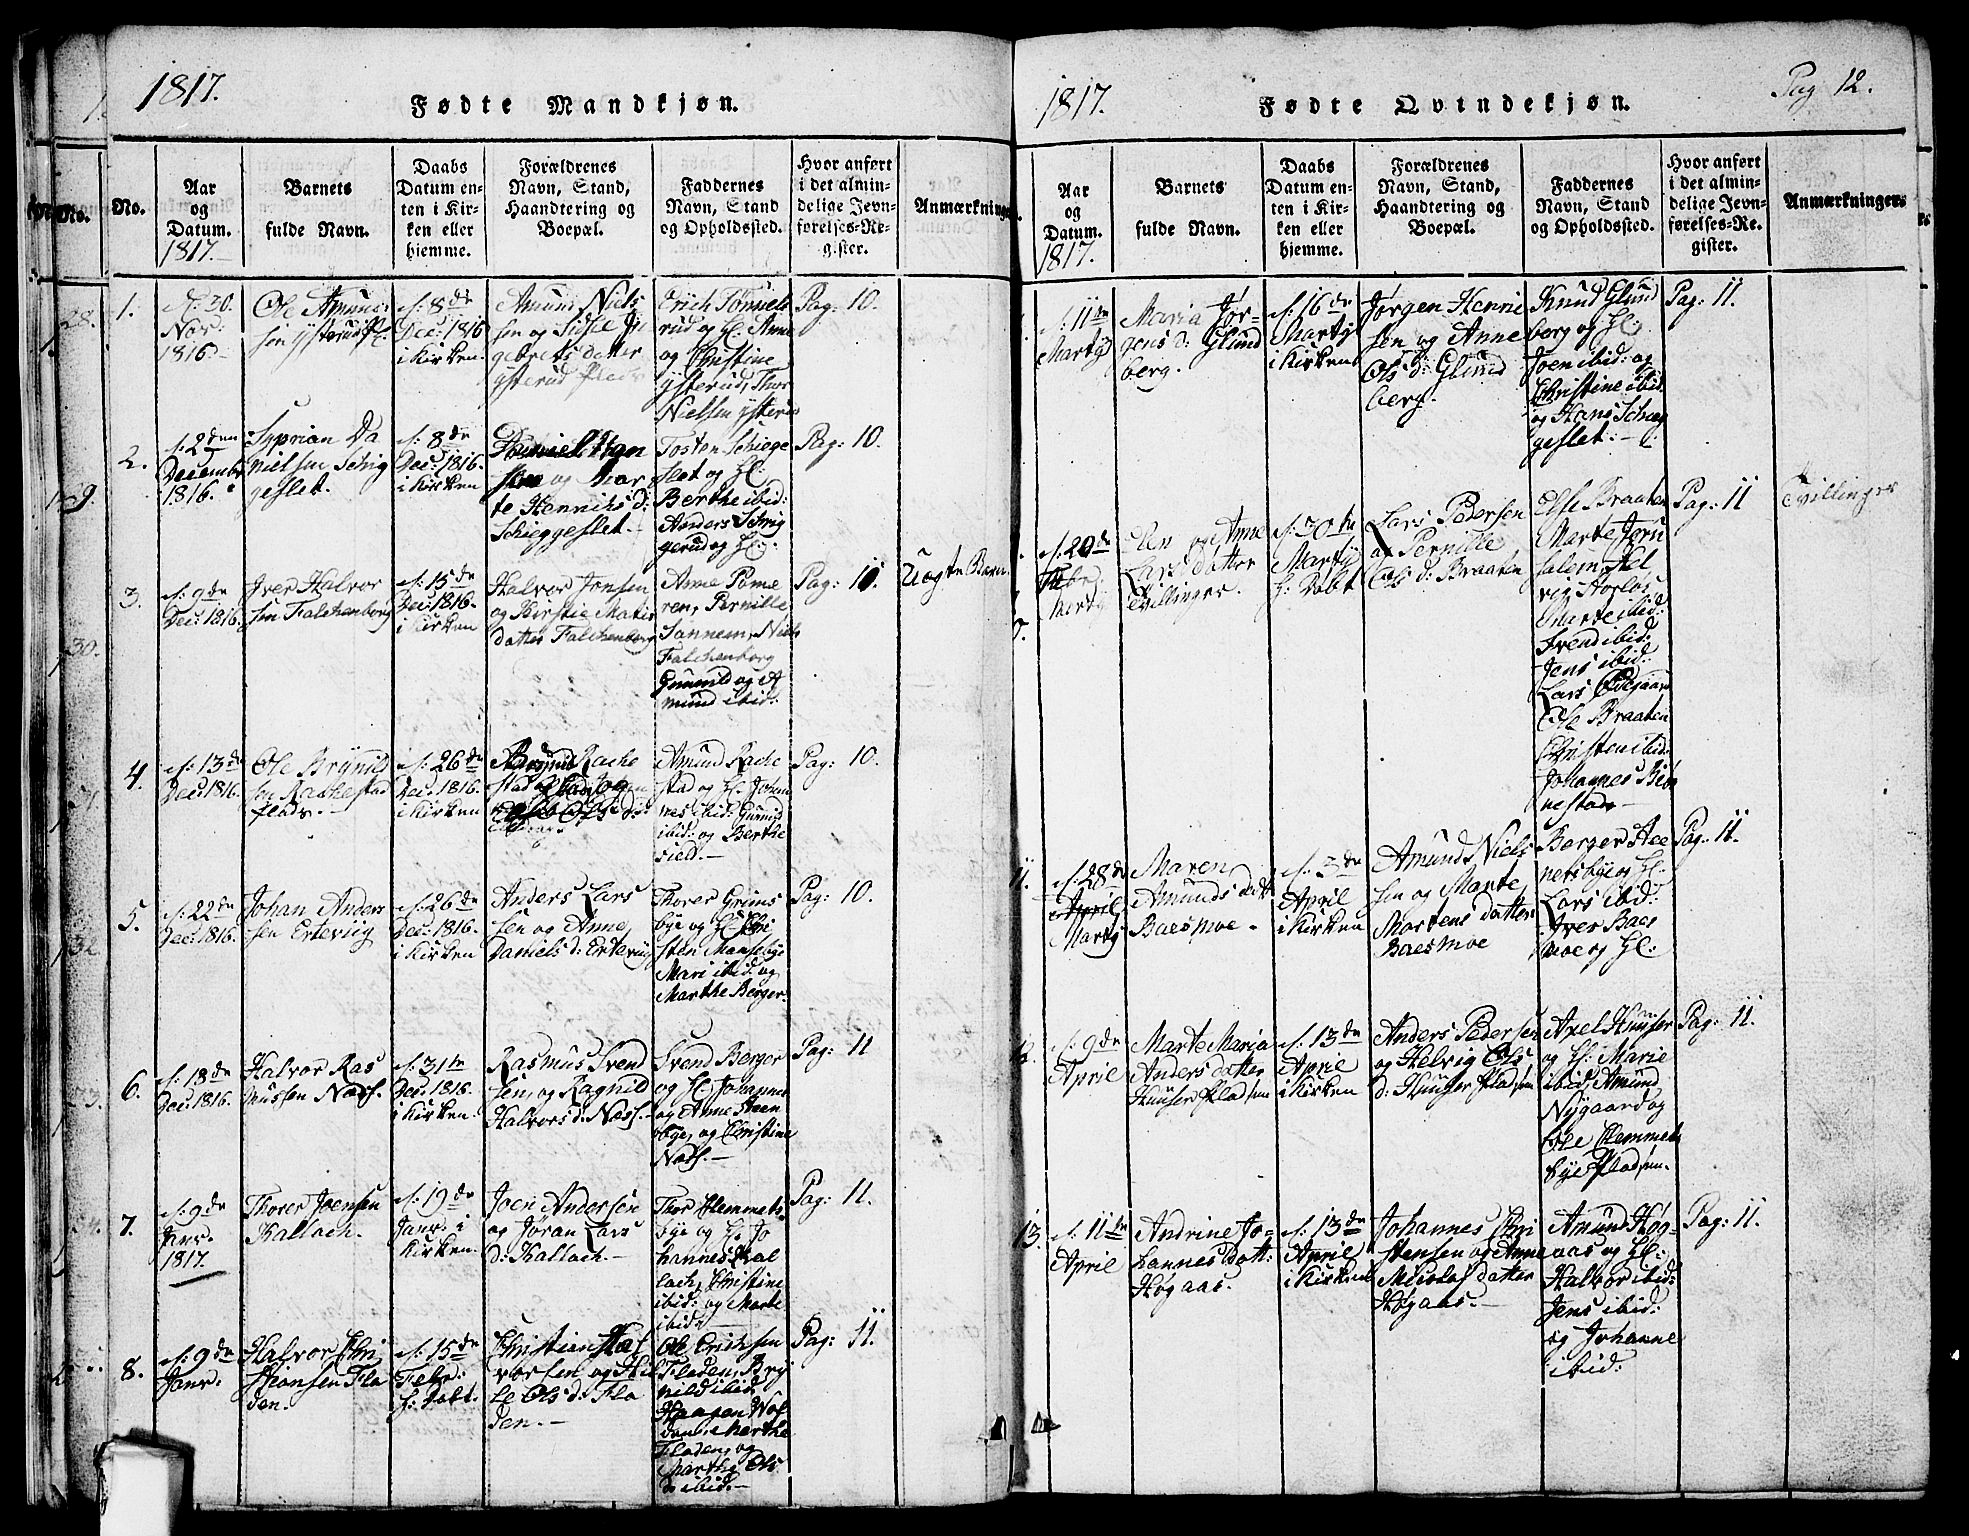 1817.
Fødte Mandkjøn.
No.
Aar
og
Datum.
1817.
Barnets
fulde Navn.
Daabs
Datum en-
ten i Kir-
ken eller
hjemme.
Forældrenes
Navn, Stand,
Haandtering og
Boepæl.
Faddernes
Navn, Stand
og Opholdssted.
Hvor anført
i det almin-
delige Jevn-
førelses-Re-
gister.
Anmærkninger
1.
d. 30.
Nov:
1816
Ole Amund
sen Ysterud
d. 8de
Dec: 1816
i Kirken.
Amund Niels
sen og Sidsel In
gebrets datter
Ysterud
Erich Tømmels
rud og H: Anne
og Christine
Ysterud, Thor
Nielsen Ysterud
Pag: 10.
2.
d. 2den
Decembr
1816.
Syprian Da
nielsen Schig
geslet.
d. 8de
Dec: 1816.
i Kirken
Daniel Han
sen og Mar
te Henrichs d:
Schieggeslet.
Tosten Schiege
slet og H:
Berthe ibid:
Anders Schig
gerud og H:
Pag: 10.
3.
d. 9de
Dec: 1816.
Iver Halvor
sen Falchenborg
d. 15de
Dec: 1816.
i Kirken
Halvor Jensen
og Kirstie Matis
datter Falchenborg
Anne Pome
ren, Pernille
Sannem, Niels
Falchenborg
Gunnild og A
mund ibid:
Pag: 10.
Uægte Barn.
4
d. 13de
Dec: 1816.
Ole Brynild
sen Rachestad
plads.
d. 26de
Dec: 1816.
i Kirken
Brynild Rache
stad
Amund Rache
stad og H: Johan
nes ibid: Gunnild
ibid: og Berthe
Sield.
Pag: 10.
5.
d. 22de
Dec: 1816.
Johan Anders
sen Ertevig
d. 26de
Dec: 1816.
i Kirken
Anders Lars
sen og Anne
Daniels d: Ertevig
Thorer Grims
bye og H: Chri
sten Mansebye
Mari ibid: og
Marthe Berger.
Pag: 10.
6.
d. 18de
Dec: 1816.
Halvor Ras
mussen Næss.
d. 31te
Dec: 1816.
i Kirken.
Rasmus Svend
sen, og Ragnild
Halvors d: Næss.
Svend Berger
og H: Johannes
og Anne Steen
bye, og Christine
Næss.
Pag: 11
7.
d. 9de
Janv:
1817.
Thorer Joensen
Kallach.
d. 19de
Janv: i
Kirken.
Joen Andersen
og Jøran Lars
d: Kallach.
Thor Hemmets
bye og H: Jo
hannes Kal
lach, Christine
ibid: og Marte
ibid:
Pag: 11.
8.
d. 9de
Janv:
Halvor Chri
stiansen Fla
den.
d. 15de
Febr:
h: Døbt.
Christian Hal
vorsen og Hel
le Ols d: Fla
den.
Ole Erichsen
Fladen, Bry
nild ibid
Haagen Wol
den, Marthe
Fladen, og
Marthe Ols
d: ibid.
Pag: 11.
1817.
Fødte Qvindekjøn.
Pag 12.
Aar
og
Datum.
1817.
Barnets
fulde Navn.
Daabs
Datum en-
ten i Kir-
ken eller
hjemme.
Forældrenes
Navn, Stand,
Haandtering og
Boepæl.
Faddernes
Navn, Stand
og Opholdssted.
Hvor anført
i det almin-
delige Jevn-
førelses-Re-
gister.
Anmærkninger
d. 11te
Martÿ
Maria Jør-
gens d: Glund
berg.
d. 16de
Martÿ
i Kirken
Jørgen Henri
sen og Anne
Ols d: Glund
berg.
Knud Glund
berg og H:
Joen ibid: og
Christine ibid:
og Hans Schieg
geslet.
Pag: 11.
d. 20de
Martÿ
Elen og Anne
Lars datter
Tvillinger.
d. 30te
Martÿ
h: Døbt
Lars Pedersen
og Pernille
Ols d: Braaten
Else Braaten
Marte Jeru
salem, Hel
vig Horløs
Marte ibid:
Svend ibid:
Jens ibid:
Lars Ødegaard
Ole Braaten
Christen ibid:
Johannes Biør
nestad
Pag: 11
Tvillinger
11.
d. 28de
Martÿ
Maren
Amunds datt
Baesmoe.
d. 3de
April
i Kirken
Amund Niels
sen og Marte
Martens datter
Baesmoe
Berger Hee
nersbye og H:
Lars ibid:
Iver Baes
moe og H:
Pag: 11.
12
d. 9de
April
Marte Maria
Anders datter
Huuser Pladsen
d. 13de
April
i Kirken
Anders Pedersen
og Helvig Ols
d: Huuser Pladsen
Axel Huuser
og H: Marie
ibid, Amund
Nygaard og
Ole Hemmets
bye Pladsen.
Pag: 11.
13.
d. 11te
April
Andrine Jo-
hannes datt:
Høgaas.
d. 13de
April
i Kirken
Johannes Chri
stensen og Anne
datter
Høgaas.
Amund Høg-
aas og H:
Halvor ibid:
Jens ibid:
og Johanne
ibid:
Pag: 11.